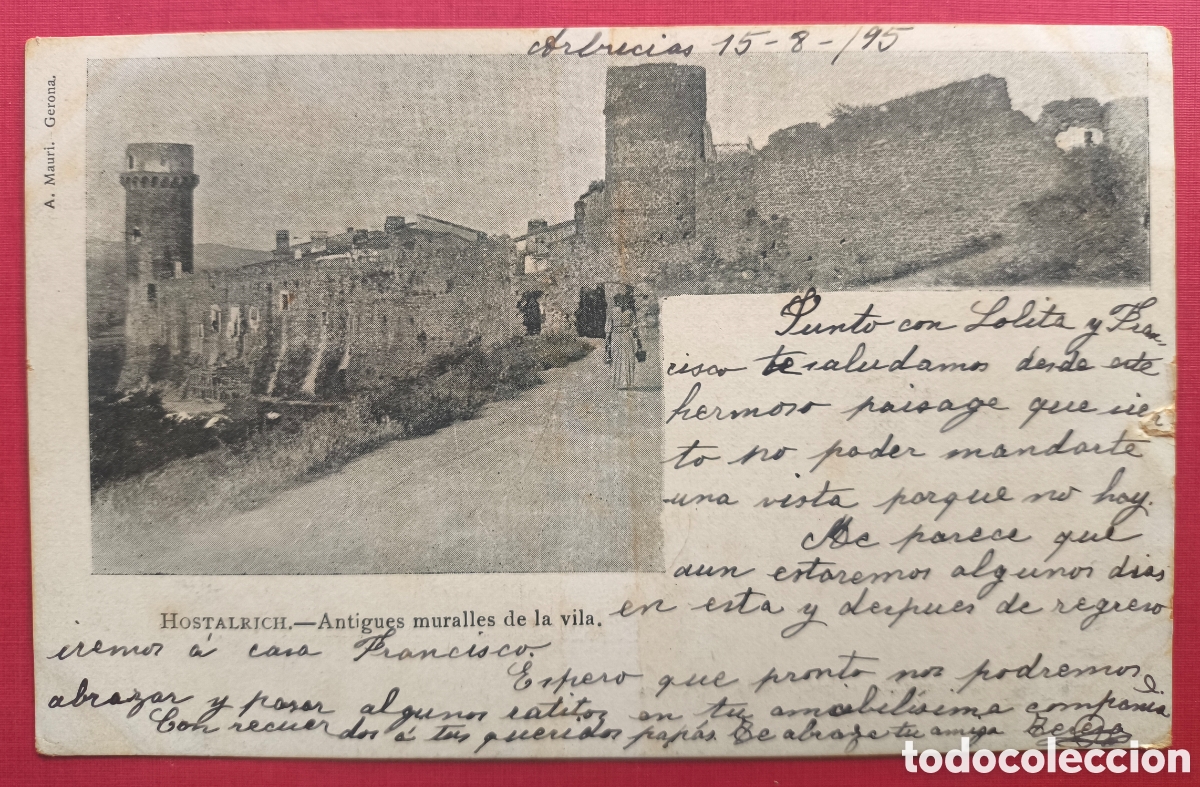 Arbucias 15-8-/95
A. Mauri. Gerona.
Junto con Lolita y Fran-
cisco te saludamos desde este
hermoso paisage que sien
to no poder mandarte
una vista porque no hay.
Me parece que
aun estaremos algunos dias
HOSTALRICH.—Antigues muralles de la vila.
en esta y despues de regreso
iremos á casa Francisco.
Espero que pronto nos podremos
abrazar y pasar algunos ratitos en tu amabilísima compañía
Con recuerdos á tus queridos papás. Te abraza tu amiga Teresa
todocoleccion